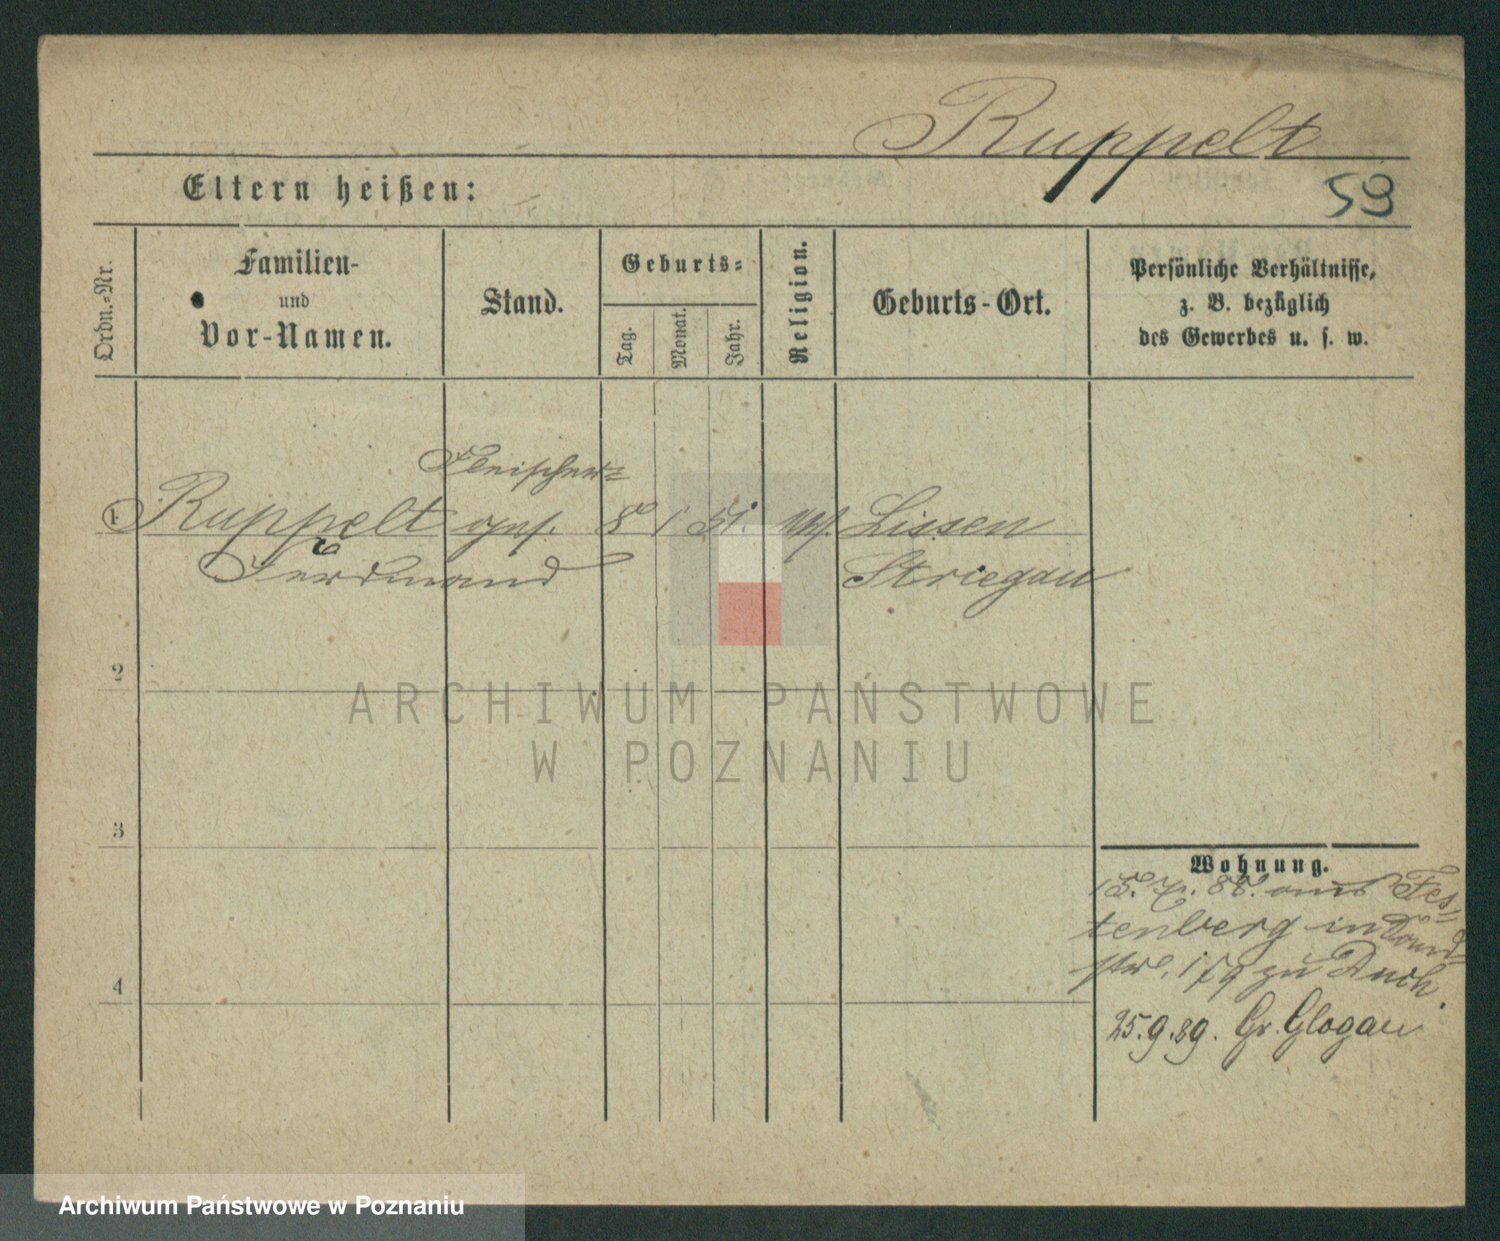 Ruppelt
Eltern heißen:
59
Ordn.-Nr.
Familien-
und
Vor-Namen.
Stand.
Geburts-
Tag.
Monat.
Jahr.
Religion.
Geburts-Ort.
Persönliche Verhältnisse,
z. B. bezüglich
des Gewerbes u. s. w.
Fleischer-
1 Ruppelt 8 1 51. Lissen
Ferdinand Striegau
2
ARCHIWUM PAŃSTWOWE
W POZNANIU
3
Wohnung.
15. 7. 88. aus Fes-
tenberg in
str. 179 zu
4
25.9.89. Gr. Glogau
Archiwum Państwowe w Poznaniu